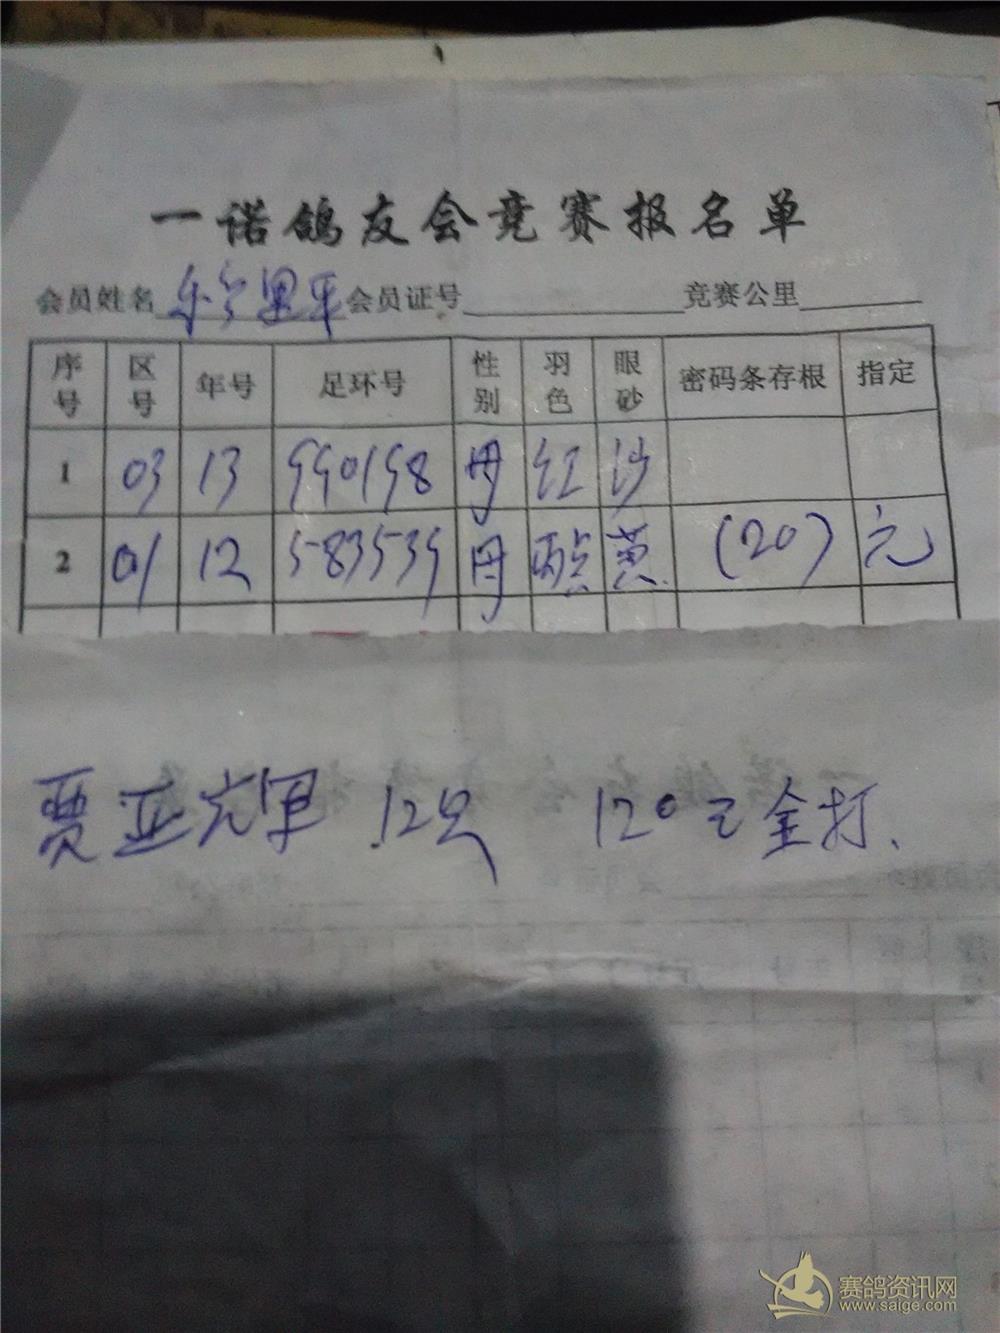 一诺鸽友会竞赛报名单
会员姓名 会员证号 竞赛公里
序号 区号 年号 足环号 性别 羽色 眼砂 密码条存根 指定
1 03 13 990198 母 红 沙
2 01 12 583539 母 黄 (20) 元
贾亚军 12只 120元全打.
赛鸽资讯网
www.saige.com